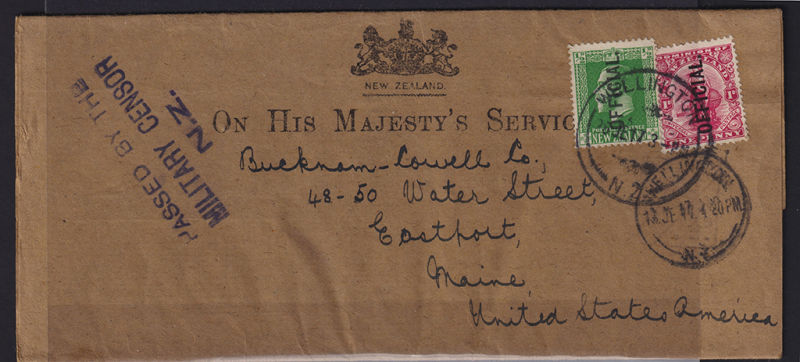 NEW ZEALAND.
ON HIS MAJESTY'S SERVIC
PASSED BY THE
MILITARY CENSOR
N.Z.
OFFICIAL.
NEW
DOMINION OF
OFFICIAL.
WELLINGTON
N.Z
WELLINGTON
4 20 PM
N.Z
Bucknam-Cowell Co.,
48-50 Water Street,
Eastport,
Maine,
United States America